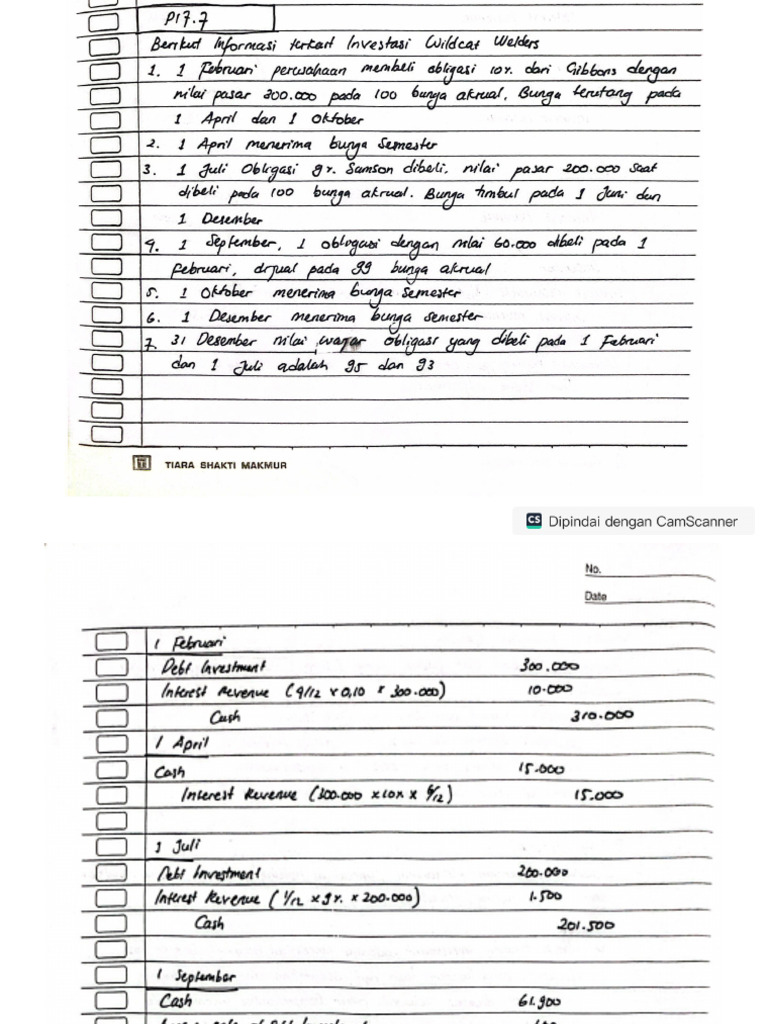 P17.7
Berikut Informasi terkait Investasi Wildcat Welders
1. 1 Februari perusahaan membeli obligasi 10%. dari Gibbons dengan
nilai pasar 300.000 pada 100 bunga akrual. Bunga terutang pada
1 April dan 1 Oktober
2. 1 April menerima bunga Semester
3. 1 Juli Obligasi 9%. Samson dibeli, nilai pasar 200.000 saat
dibeli pada 100 bunga akrual. Bunga timbul pada 1 Juni dan
1 Desember
4. 1 September, 1 obligasi dengan nilai 60.000 dibeli pada 1
Februari, dijual pada 99 bunga akrual
5. 1 Oktober menerima bunga Semester
6. 1 Desember menerima bunga semester
7. 31 Desember nilai wajar obligasi yang dibeli pada 1 Februari
dan 1 Juli adalah 95 dan 93
TIARA SHAKTI MAKMUR
CS Dipindai dengan CamScanner
No.
Date
1 Februari
Debt Investment 300.000
Interest Revenue (4/12 x 0,10 x 300.000) 10.000
Cash 310.000
1 April
Cash 15.000
Interest Revenue (300.000 x 10% x 6/12) 15.000
1 Juli
Debt Investment 200.000
Interest Revenue (1/12 x 9%. x 200.000) 1.500
Cash 201.500
1 September
Cash 61.900